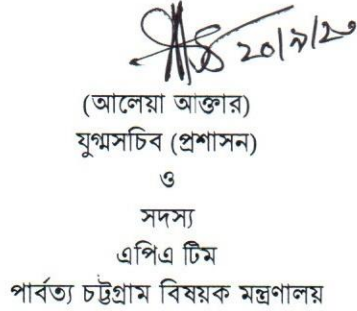 ২০/৯/২০
(আলেয়া আক্তার)
যুগ্মসচিব (প্রশাসন)
ও
সদস্য
এপিএ টিম
পার্বত্য চট্টগ্রাম বিষয়ক মন্ত্রণালয়